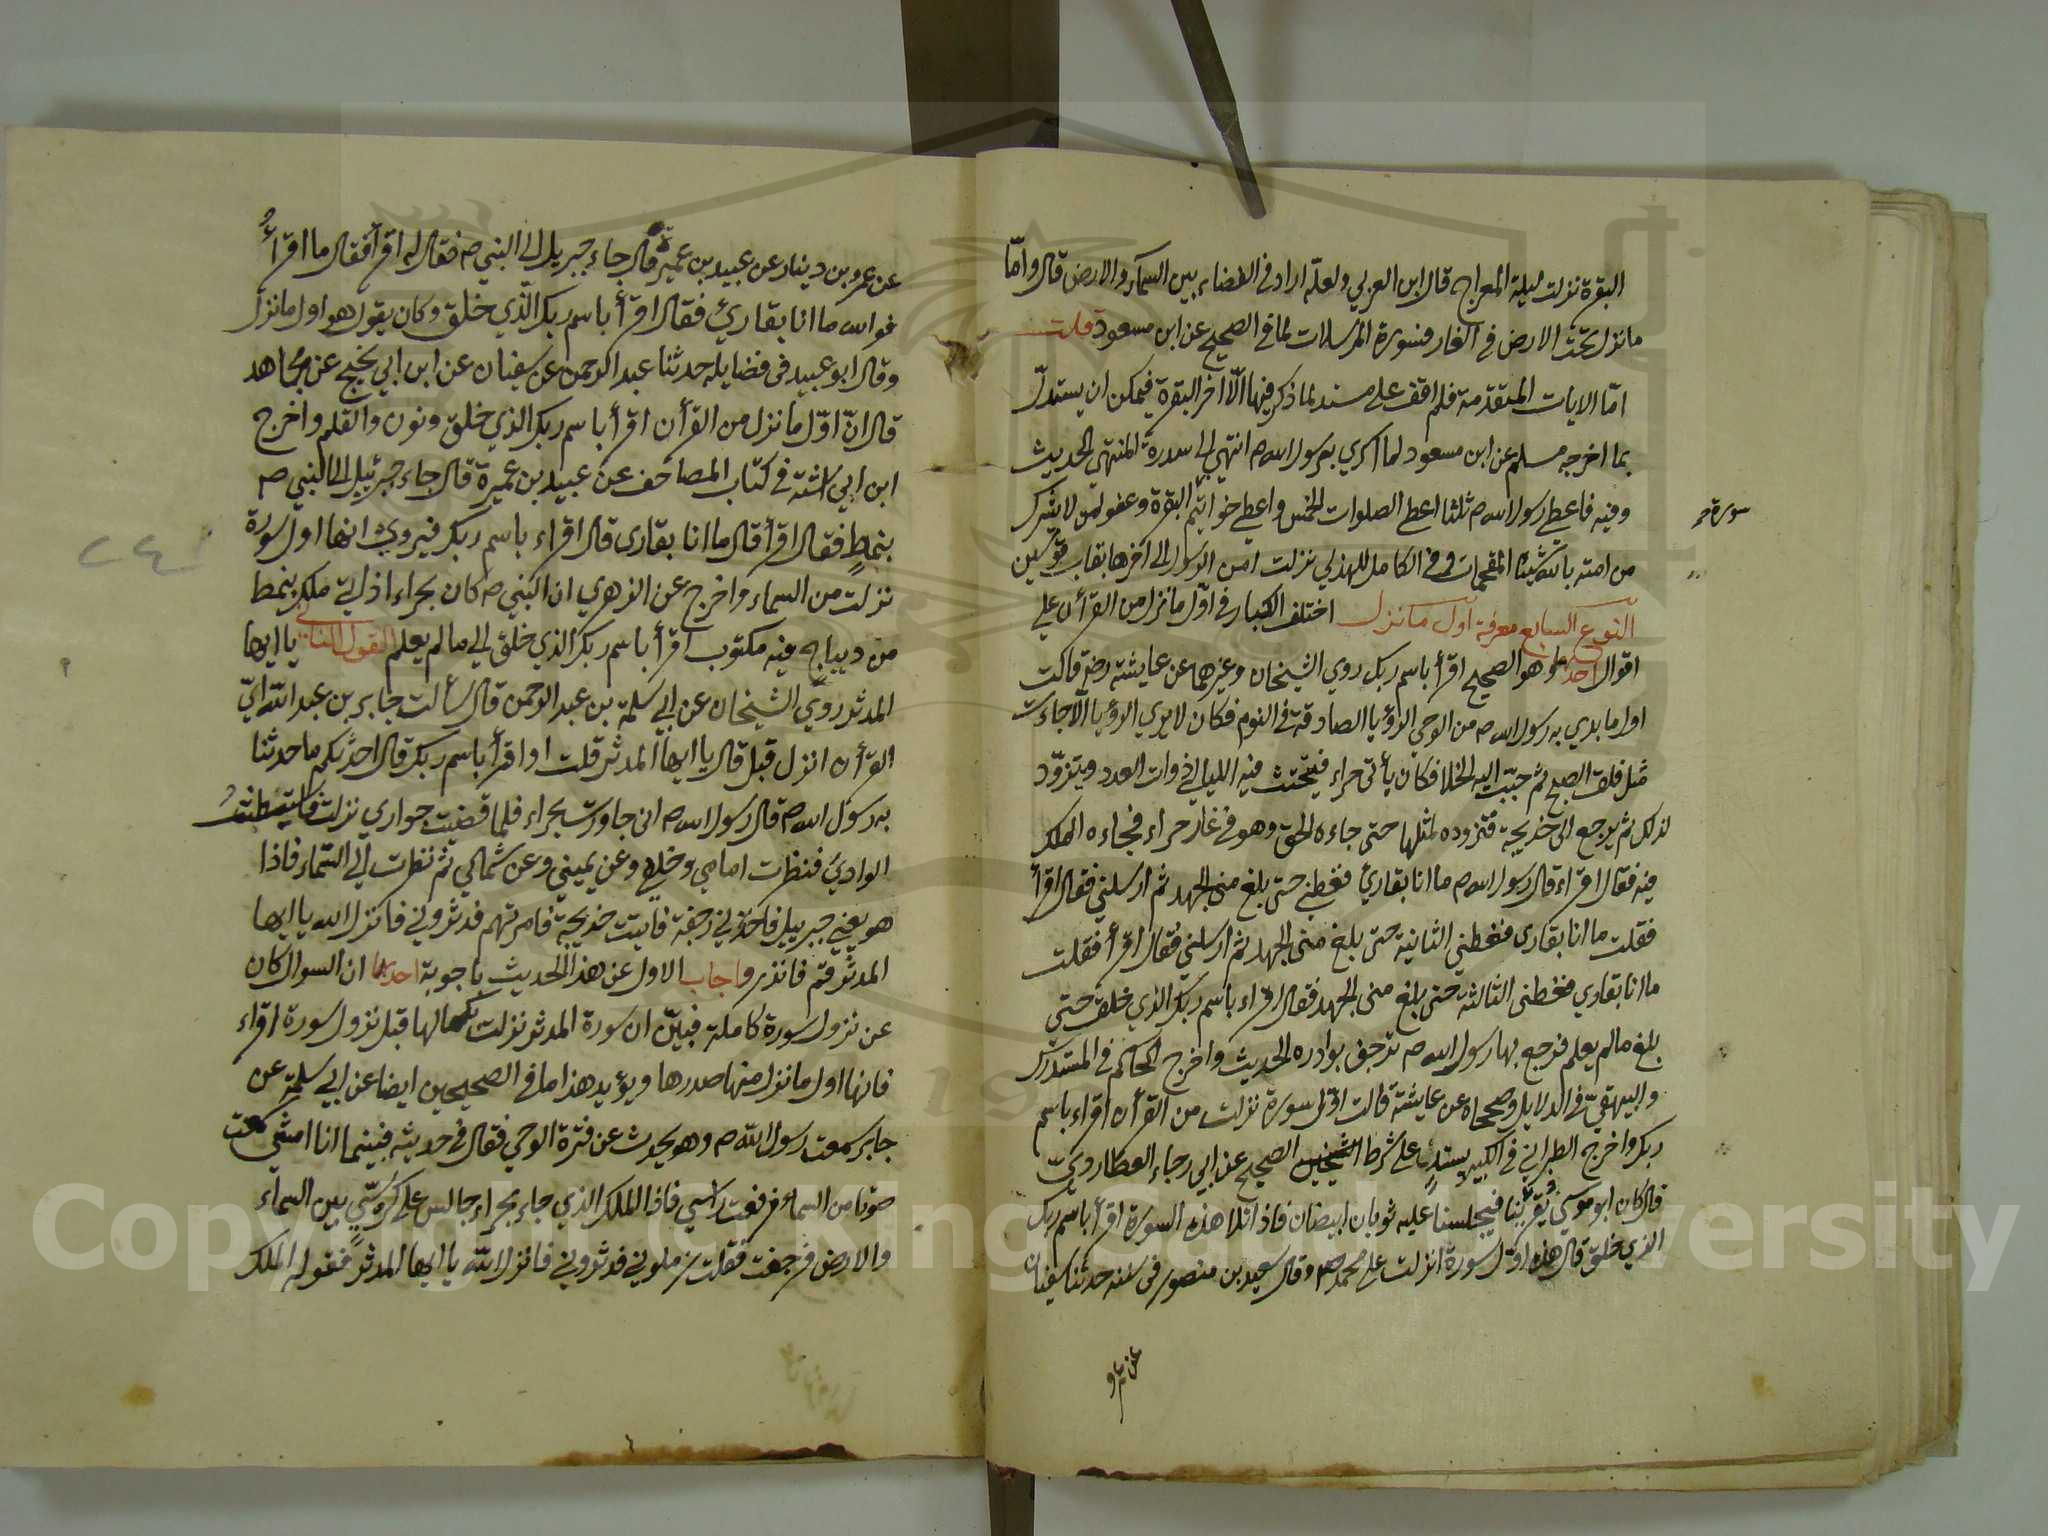 البقرة نزلت ليلة المعراج قال ابن العربي ولعله اراد في الفضاء بين السماء والارض قال وامّا
ما نزل تحت الارض في الغار فسورة المرسلات لما في الصحيح عن ابن مسعود قلت
امّا الايات المتقدّمة فلم اقف على مسند لما ذكر فيها الّا اخر البقرة فيمكن ان يستدلّ
بما اخرجه مسلم عن ابن مسعود لما اسري برسول الله ص انتهي الي سدرة المنتهي الحديث
وفيه فاعطي رسول الله ص ثلثا اعطي الصلوات الخمس واعطي خواتيم البقرة وعفو لمن لا يشرك
من امته بالله شيئا المقحمات وفي الكامل للهذلي نزلت امن الرسول الي اخرها بقاب قوسين
النوع السابع معرفة اول ما نزل اختلف الكبار في اوّل ما نزل من القرآن علي
اقوال احدها وهو الصحيح اقرأ باسم ربك روي الشيخان وغيرهما عن عايشة رضي قالت
اول ما بدي به رسول الله ص من الوحي الرؤيا الصادقة في النوم فكان لا يري الرؤيا الّا جاءت
مثل فلق الصبح ثم حبّب اليه الخلا فكان يأتي حراء فيتحنث فيه الليالي ذوات العدد ويتزوّد
لذلك ثم يرجع الى خديجة فتزوده لمثلها حتى جاءه الحق وهو في غار حراء فجاءه الملك
فيه فقال اقراء قال رسول الله ص ما انا بقارئ فغطني حتى بلغ منى الجهد ثم ارسلني فقال اقرأ
فقلت ما انا بقاري فغطني الثانية حتى بلغ منى الجهد ثم ارسلني فقال اقرأ فقلت
ما انا بقاري فغطنى الثالثة حتى بلغ منى الجهد فقال اقراء باسم ربك الذي خلق حتي
بلغ مالم يعلم فرجع بها رسول الله ص ترجف بوادره الحديث واخرج الحاكم في المستدرك
والبيهقيّ في الدلايل وصححاه عن عايشة قالت اوّل سورة نزلت من القرآن اقراء باسم
ربك واخرج الطبراني في الكبير بسند على شرط الصحيح عن ابي رجاء العطارديّ
قال كان ابو موسي يقرئنا فيجلسنا عليه ثوبان ابيضان فاذا تلا هذه السورة اقرأ باسم ربك
الذي خلق قال هذه اوّل سورة انزلت على محمد ص وقال سعيد بن منصور في سننه حدثنا سفيان
عن عمرو
عن عمرو بن دينار عن عبيد بن عمير قال جاء جبريل الي النبي ص فقال له اقرأ فقال ما اقرأ
فو الله ما انا بقارئ فقال اقرأ باسم ربك الّذي خلق وكان يقول هو اول ما نزل
وقال ابو عبيد في فضايله حدثنا عبد الرحمن عن سفيان عن ابن ابي نجيح عن مجاهد
قال انّ اوّل ما نزل من القرآن اقرأ باسم ربك الذي خلق ونون والقلم واخرج
ابن ابي اشته في كتاب المصاحف عن عبيد بن عميرة قال جاء جبرئيل الى النبي ص
بنمط فقال اقرأ قال ما انا بقارى قال اقراء باسم ربك فيروي انها اول سورة
نزلت من السماء واخرج عن الزهري ان النبي ص كان بحراء اذ اتي ملك بنمط
من ديباج فيه مكتوب اقرأ باسم ربك الذي خلق الي مالم يعلم القول الثاني يا ايها
المدثر روي الشيخان عن ابي سلمة بن عبد الرحمن قال سألت جابر بن عبد الله ايّ
القرآن انزل قبل قال يا ايها المدثر قلت او اقرأ باسم ربك قال احدثكم ما حدثنا
به رسول الله ص قال رسول الله ص اني جاورت بحراء فلما قضيت جواري نزلت فاستبطنت
الوادي فنظرت امامي وخلفي وعن يميني وعن شمالي ثم نظرت الي السّماء فاذا
هو يعني جبرييل فاخذني رجفة فاتيت خديجة فامرتهم فدثروني فانزل الله يا ايها
المدثر قم فانذر واجاب الاول عن هذا الحديث باجوبة احدها ان السوال كان
عن نزول سورة كاملة فبيّن ان سورة المدثر نزلت بكمالها قبل نزول سورة اقراء
فانها اول ما نزل منها صدرها ويؤيد هذا ما في الصحيحين ايضا عن ابي سلمة عن
جابر سمعت رسول الله ص وهو يحدث عن فترة الوحي فقال في حديثه فبينما انا امشي سمعت
صوتا من السماء فرفعت راسي فاذا الملك الذي جاء بحراء جالس على كرسّي بين السماء
والارض فرجعت فقلت زملوني فدثروني فانزل الله يا ايها المدثر فقوله الملك
Copyright © King Saud University